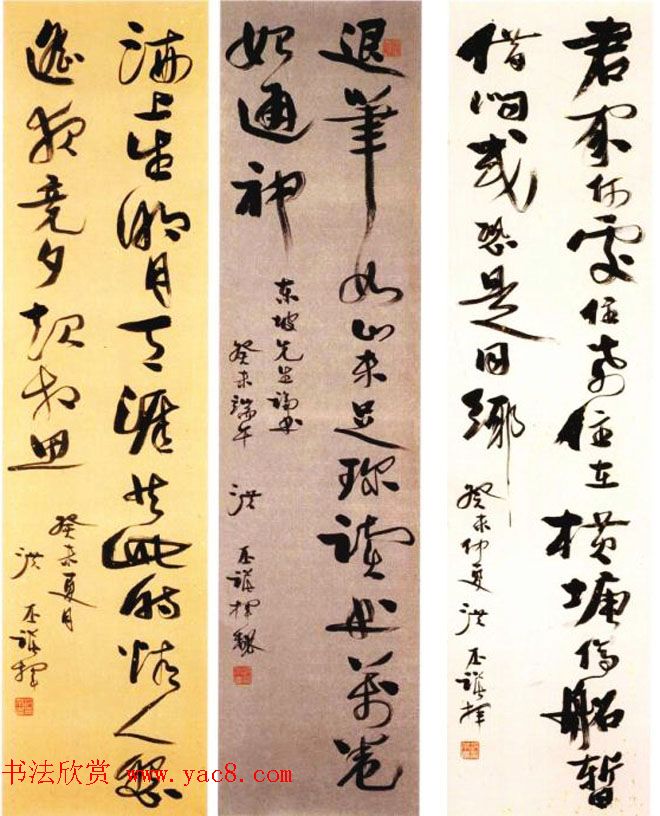 君家何處住妾住在横塘停船暫
借问或恐是同鄉
癸未仲夏 洪丕謨揮
退筆如山未足珎讀书萬卷
始通神
东坡先生论书
癸未端午 洪丕謨揮
海上生明月天涯共此时情人怨
遥夜竟夕起相思
癸未夏月
洪丕謨揮
书法欣赏 www.yac8.com